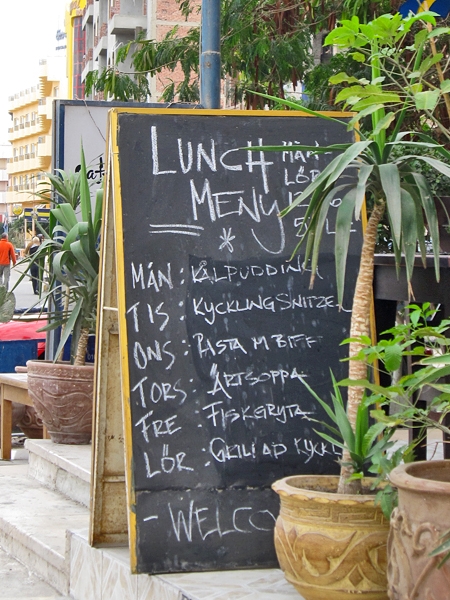 LUNCH MÅN
MENY LÖR
MÅN: KÅLPUDDING
TIS: KYCKLINGSNITZEL
ONS: PASTA M BIFF
TORS: ÄRTSOPPA
FRE: FISKGRYTA
LÖR: GRILLAD KYCKL
- WELCO